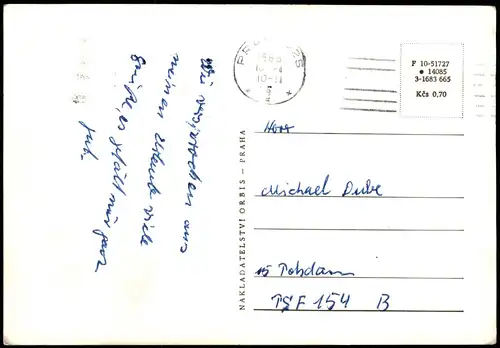 Wie versprochen aus
meinem Urlaub viele
Grüße, es gefällt mir ganz
gut.
PRAHA 025
F 10-51727
● 14085
3-1683 665
Kčs 0,70
NAKLADATELSTVÍ ORBIS - PRAHA
Herr
Michael Dube
15 Potsdam
TSF 154 B